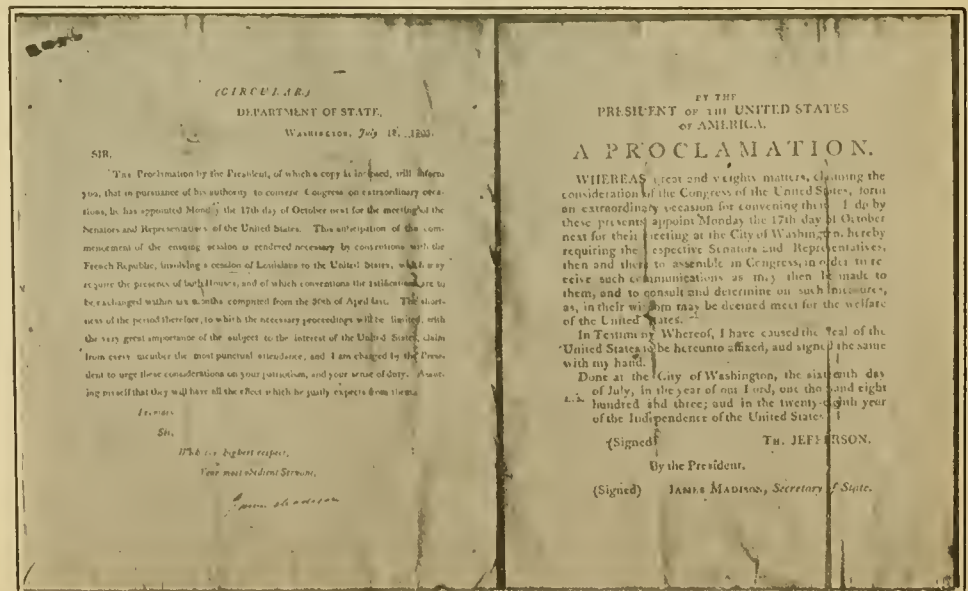 (CIRCULAR)
DEPARTMENT OF STATE,
WASHINGTON, July 18, 1803.
SIR,
THE Proclamation by the President, of which a copy is inclosed, will inform
you, that in pursuance of his authority to convene Congress on extraordinary occa-
sions, he has appointed Monday the 17th day of October next for the meeting of the
Senators and Representatives of the United States. This anticipation of the com-
mencement of the ensuing session is rendered necessary by conventions with the
French Republic, involving a cession of Louisiana to the United States, which may
require the presence of both Houses, and of which conventions the ratifications are to
be exchanged within six months computed from the 30th of April last. The short-
ness of the period therefore, to which the necessary proceedings will be limited, with
the very great importance of the subject to the interest of the United States, claim
from every member the most punctual attendance, and I am charged by the Presi-
dent to urge these considerations on your patriotism, and your sense of duty. Assur-
ing myself that they will have all the effect which he justly expects from them
I remain
Sir,
With the highest respect,
Your most obedient Servant,
James Madison
BY THE
PRESIDENT OF THE UNITED STATES
OF AMERICA.
A PROCLAMATION.
WHEREAS great and weighty matters, claiming the
consideration of the Congress of the United States, form
an extraordinary occasion for convening them, I do by
these presents appoint Monday the 17th day of October
next for their meeting at the City of Washington, hereby
requiring the respective Senators and Representatives,
then and there to assemble in Congress, in order to re-
ceive such communications as may then be made to
them, and to consult and determine on such measures,
as, in their wisdom may be deemed meet for the welfare
of the United States.
In Testimony Whereof, I have caused the Seal of the
United States to be hereunto affixed, and signed the same
with my hand.
Done at the City of Washington, the sixteenth day
L.S. of July, in the year of our Lord, one thousand eight
hundred and three; and in the twenty-eighth year
of the Independence of the United States.
(Signed) TH. JEFFERSON.
By the President.
(Signed) JAMES MADISON, Secretary of State.